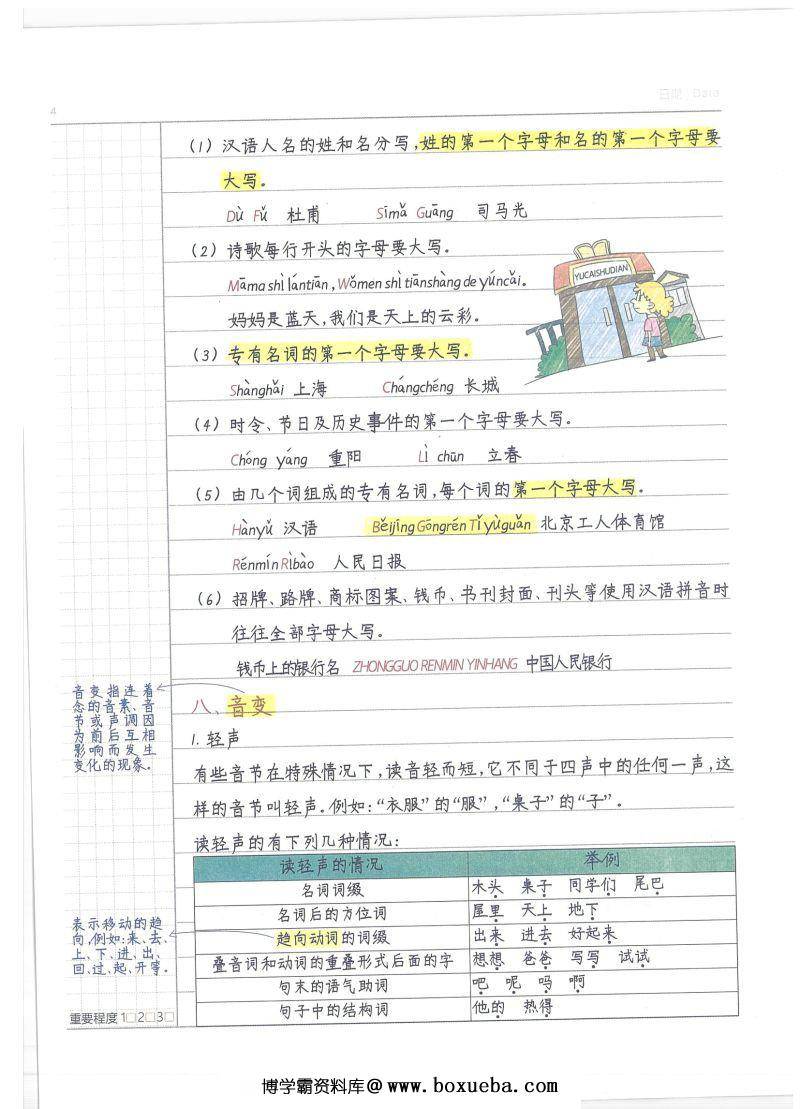 日期 Data
4
(1) 汉语人名的姓和名分写,姓的第一个字母和名的第一个字母要
大写。
Dù Fǔ 杜甫 Sīmǎ Guāng 司马光
(2) 诗歌每行开头的字母要大写。
Māma shì lántiān,Wǒmen shì tiānshàng de yúncǎi.
妈妈是蓝天,我们是天上的云彩。
YUCAISHUDIAN
(3) 专有名词的第一个字母要大写。
Shànghǎi 上海 Chángchéng 长城
(4) 时令、节日及历史事件的第一个字母要大写。
Chóng yáng 重阳 Lì chūn 立春
(5) 由几个词组成的专有名词,每个词的第一个字母大写。
Hànyǔ 汉语 Běijīng Gōngrén Tǐyùguǎn 北京工人体育馆
Rénmín Rìbào 人民日报
(6) 招牌、路牌、商标图案、钱币、书刊封面、刊头等使用汉语拼音时
往往全部字母大写。
钱币上的银行名 ZHONGGUO RENMIN YINHANG 中国人民银行
音变指连着
念的音素、音
节或声调因
为前后互相
影响而发生
变化的现象。
八、音变
1. 轻声
有些音节在特殊情况下,读音轻而短,它不同于四声中的任何一声,这
样的音节叫轻声。例如:“衣服”的“服”,“桌子”的“子”。
读轻声的有下列几种情况:
读轻声的情况 举例
名词词缀 木头 桌子 同学们 尾巴
名词后的方位词 屋里 天上 地下
趋向动词的词缀 出来 进去 好起来
叠音词和动词的重叠形式后面的字 想想 爸爸 写写 试试
句末的语气助词 吧 呢 吗 啊
句子中的结构词 他的 热得
表示移动的趋
向,例如:来、去、
上、下、进、出、
回、过、起、开等。
重要程度 1□2□3□
博学霸资料库@www.boxueba.com